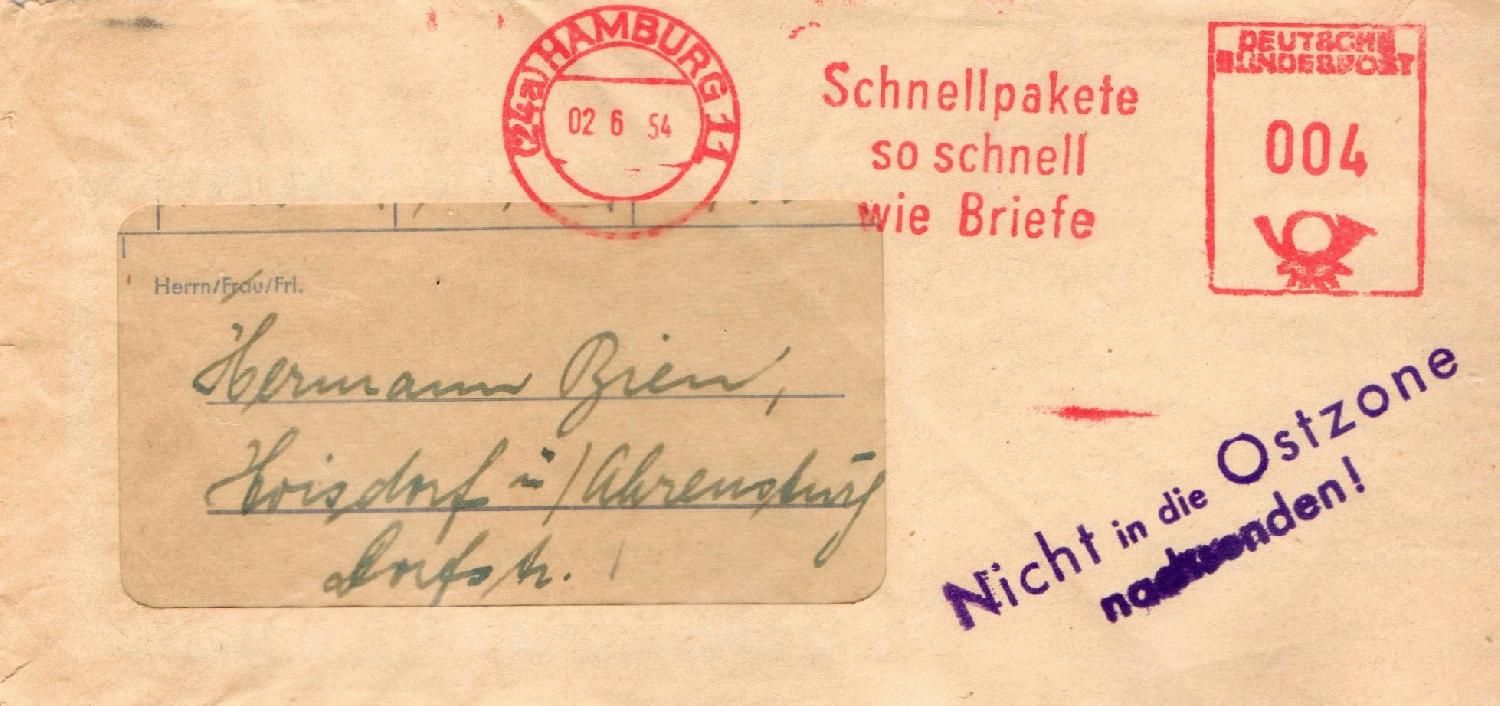 (24a) HAMBURG 11
02 6 54
Schnellpakete
so schnell
wie Briefe
DEUTSCHE
BUNDESPOST
004
Herrn/Frau/Frl.
Hermann Bien,
Hoisdorf ü/Ahrensburg
Dorfstr.
Nicht in die Ostzone
nachsenden!